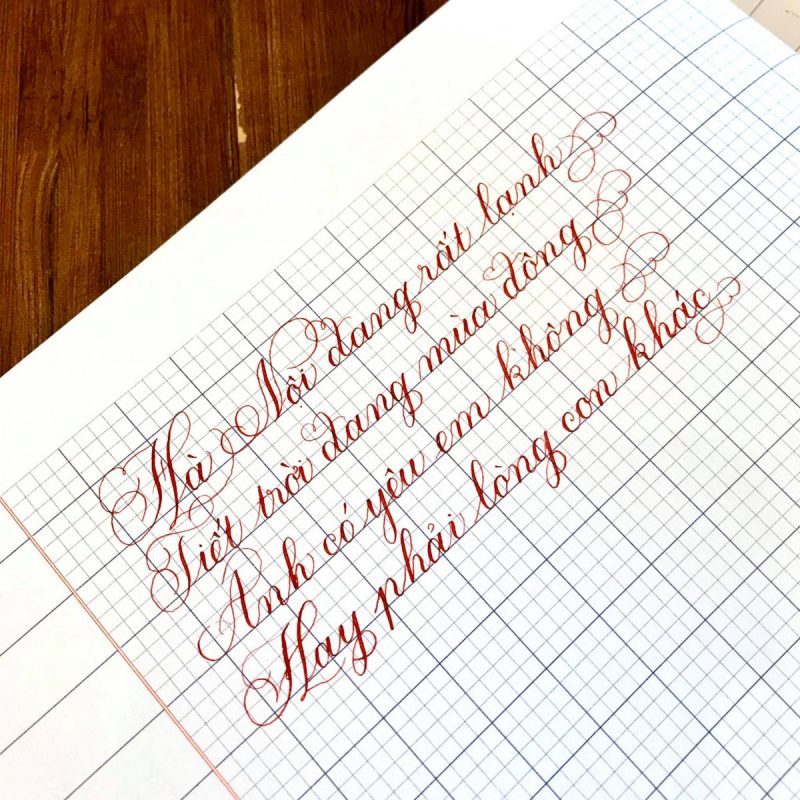 Hà Nội đang rất lạnh
Tiết trời đang mùa đông
Anh có yêu em không
Hay phải lòng con khác